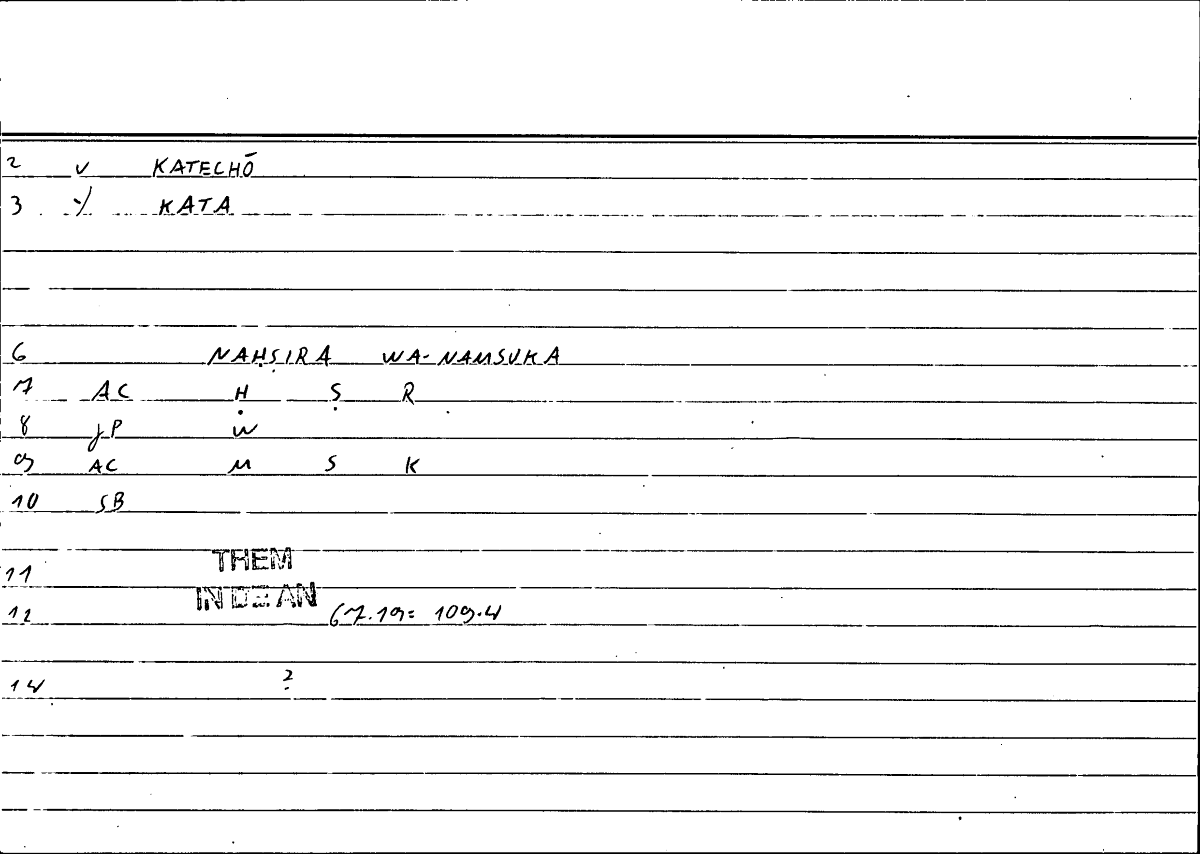 2 v KATECHŌ
3 γ/ KATA
6 NAḤṢIRA WA-NAMSUKA
7 AC Ḥ Ṣ R
8 JP W
9 AC M S K
10 SB
11 THEM
12 IN DE AN 67.19= 109.4
14 ?